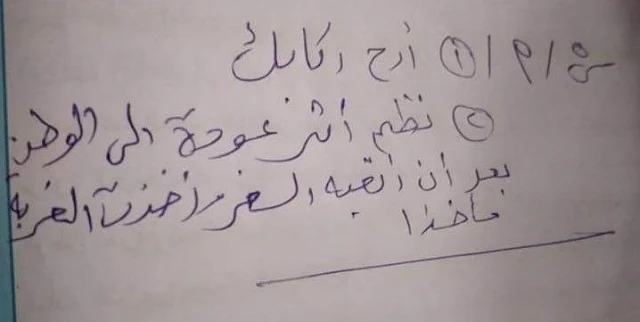 س٥ / م / ① أرح ركابك
② نظم أثر عودة الى الوطن
بعد أن أتعبه السفر وأخذت الغربة
مأخذا